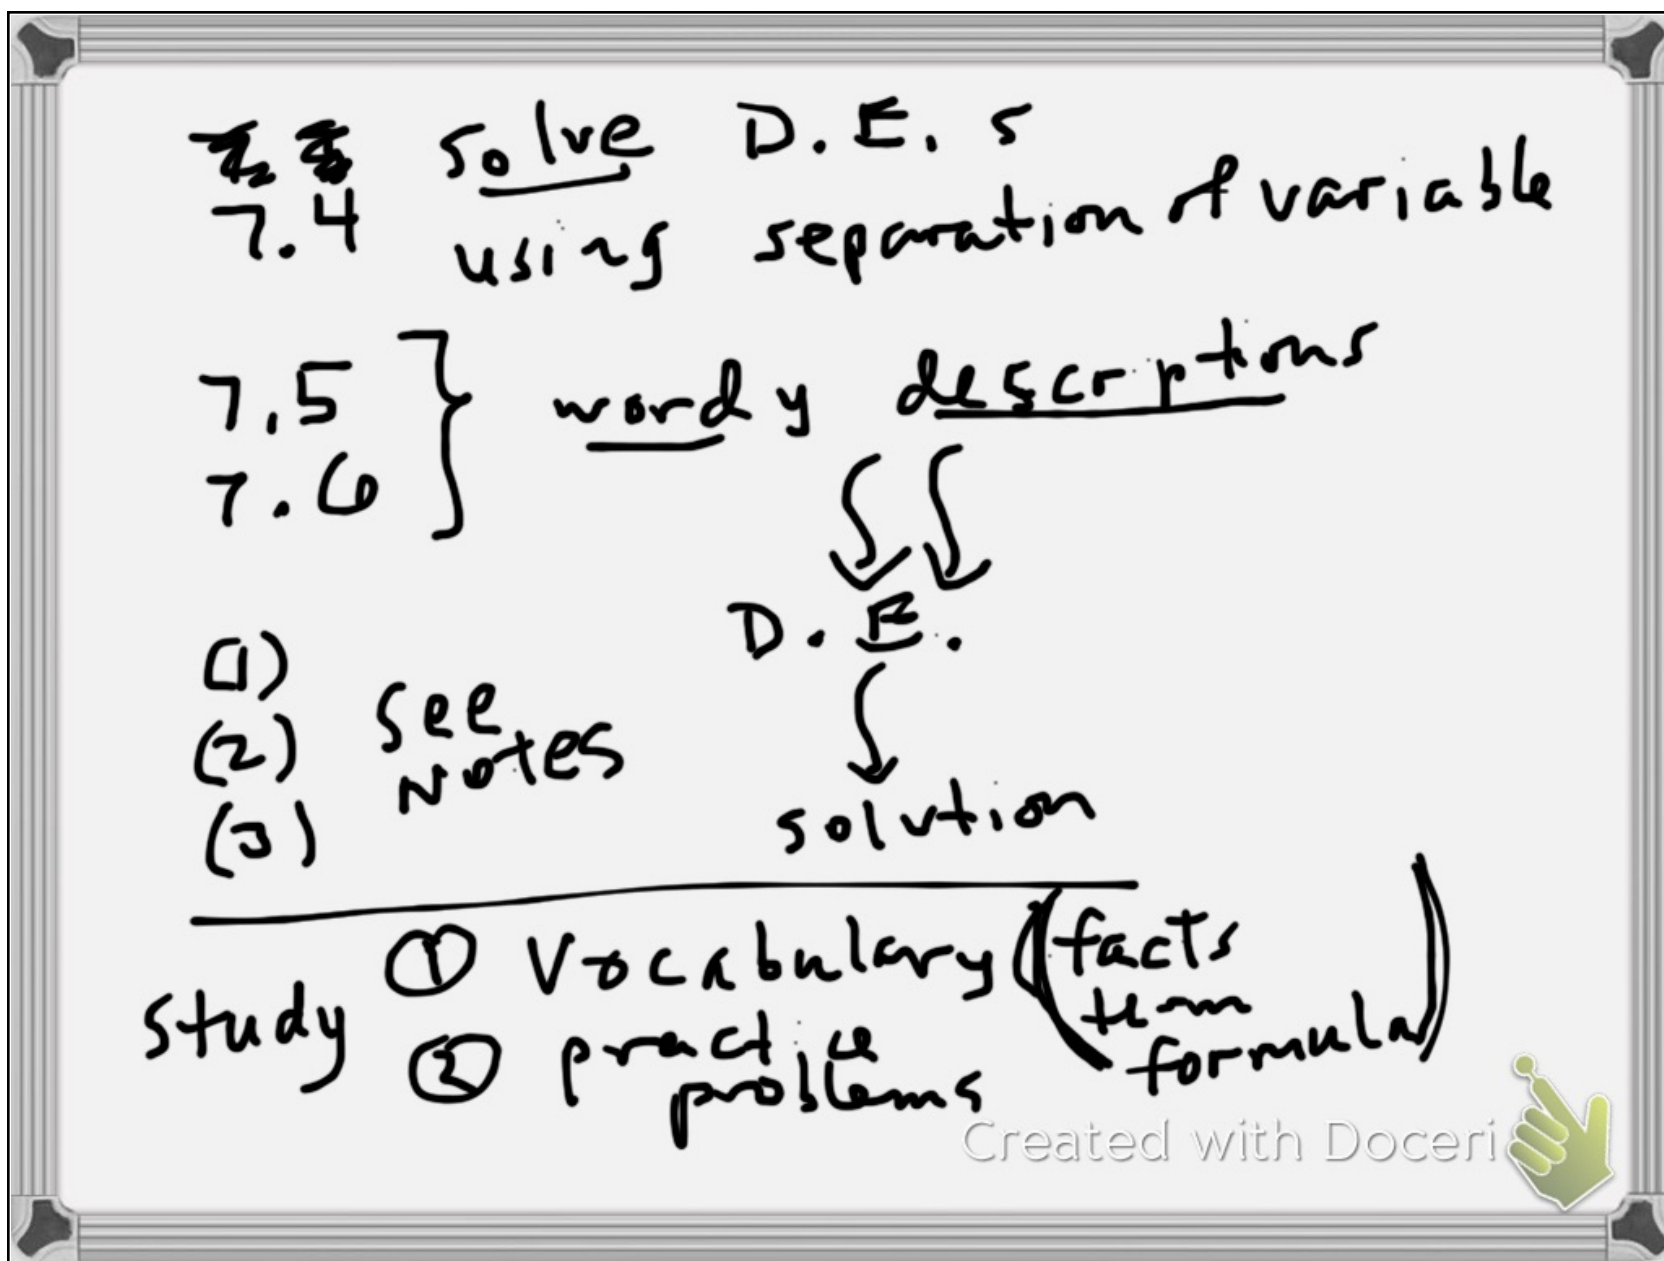 solve D.E.s
7.4 using separation of variable
7.5 } wordy descriptions
7.6
D.E.
(1)
(2) see
notes
(3)
solution
study ① Vocabulary (facts
term
formula)
② practice
problems
Created with Doceri